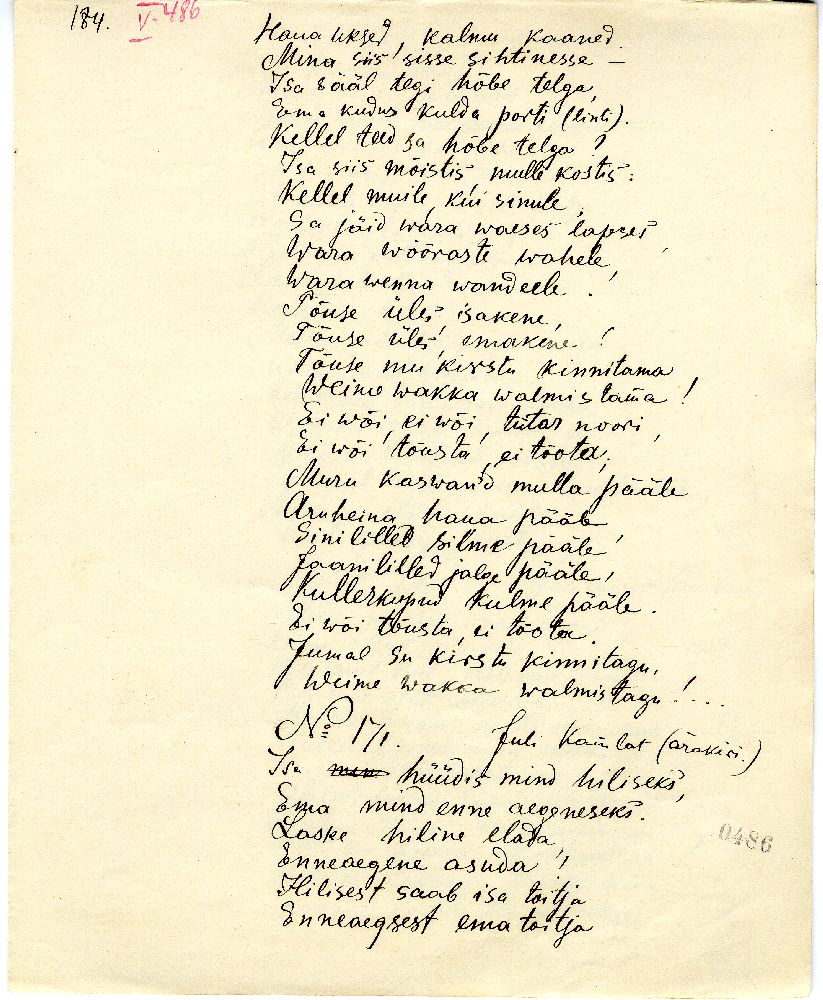 184. V. 486
Haua uksed, kalmu kaaned
Mina siis sisse sihtinesse –
Isa sääl tegi hõbe telga,
Ema kudus kulda porti (linti).
Kellel teed sa hõbe telga?
Isa siis mõistis mulle kostis:
Kellel muile, kui sinule,
Sa jäid wara waeses lapses
Wara wõõraste wahele,
Wara wenna wandeele.!
Tõuse üles, isakene,
Tõuse üles, emakene!
Tõuse mu kirstu kinnitama
Weime wakka walmistama!
Ei wõi, ei wõi, tütar noori,
Ei wõi tõusta, ei tõota,
Muru kaswand mulla pääle
Aruheina haua pääle
Sinililled silme pääle,
Jaanililled jalge pääle,
Kullerkupud kulme pääle.
Ei wõi tõusta, ei tõota.
Jumal su kirstu kinnitagu,
Weime wakka walmistagu!...
No 171. Juli Kamlat (ärakiri.)
Isa hüüdis mind hiliseks,
Ema mind enne aeogneseks.
Laske hiline elada,
Enneaegene asuda!
Hilisest saab isa toitja
Enneaegsest ema toitja
0486